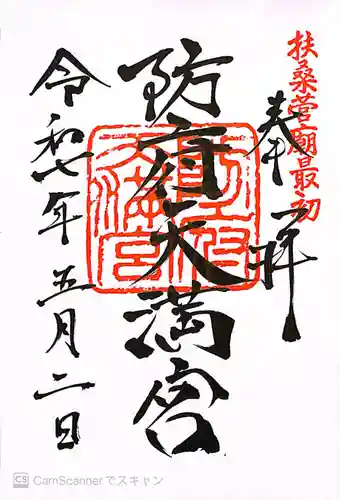 扶桑菅廟最初
奉拝
防府天満宮
令和七年五月二日
CS CamScannerでスキャン